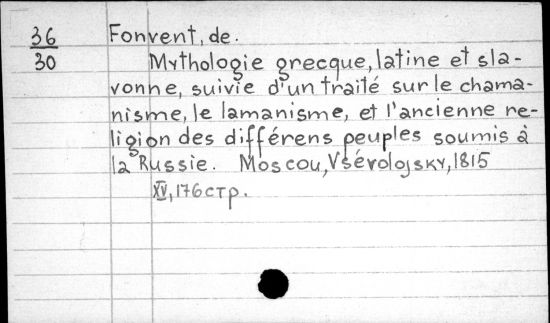 36
30
Fonvent, de.
Mythologie grecque, latine et sla-
vonne, suivie d'un traité sur le chama-
nisme, le lamanisme, et l'ancienne re-
ligion des différens peuples soumis à
la Russie. Moscou, Vsévolojsky, 1815
XV, 176 стр.